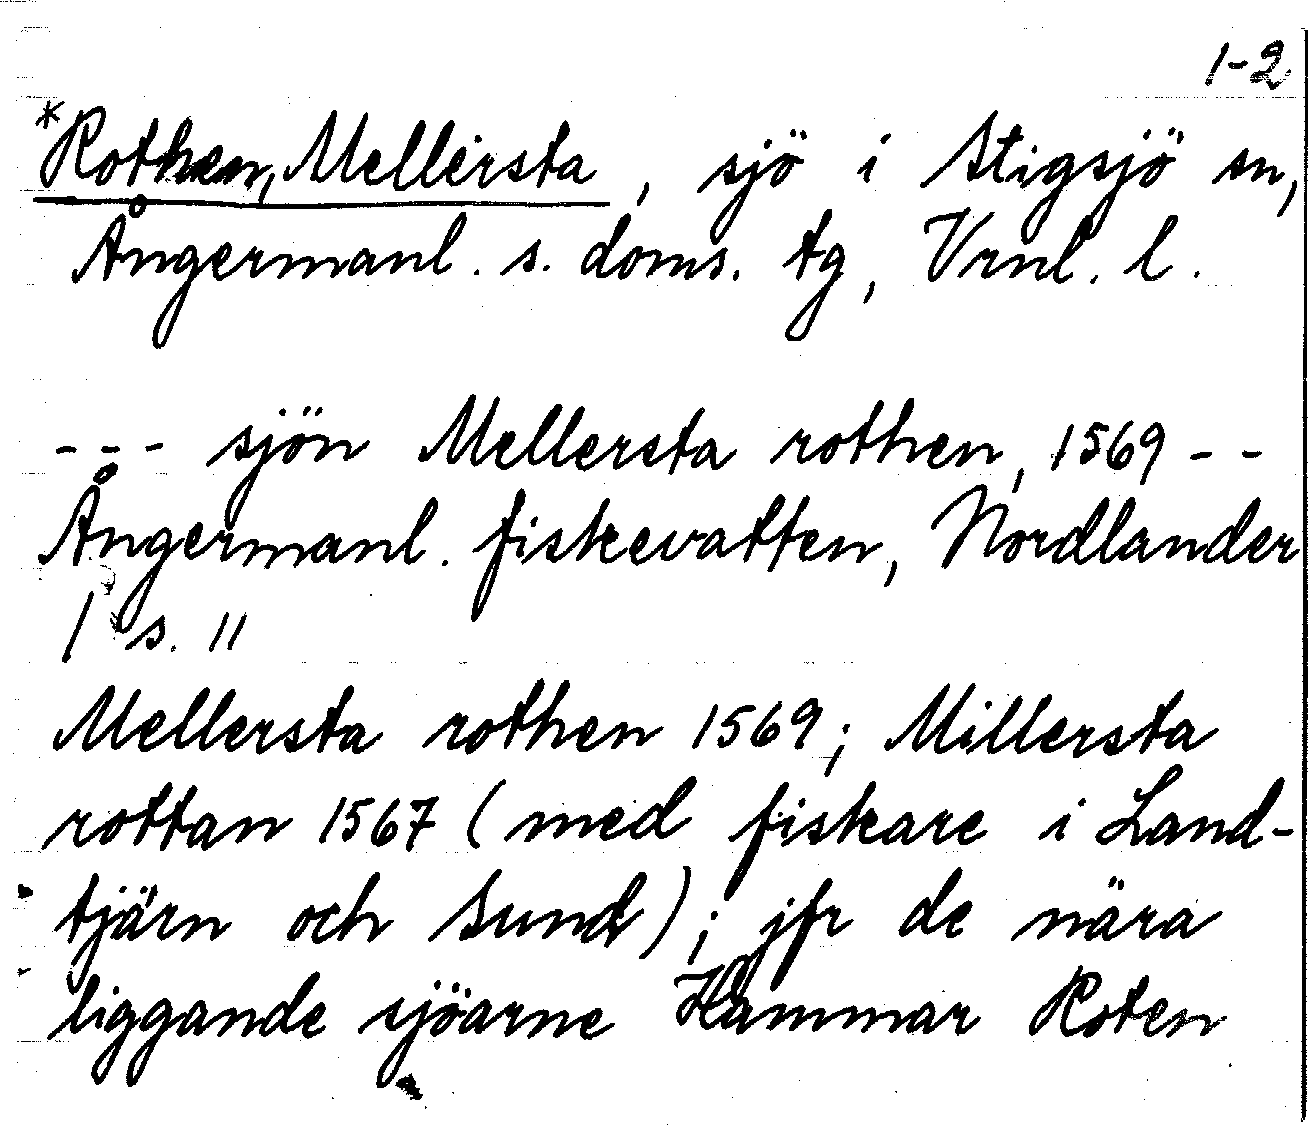 1-2
*Rothen, Mellersta, sjö i Stigsjö sn,
Ångermanl. s. doms. tg, Vrnl. l.
- - - sjön Mellersta rothen, 1569 - -
Ångermanl. fiskevatten, Nordlander
/ s. 11
Mellersta rothen 1569; Millersta
rottan 1567 (med fiskare i Land-
tjärn och Sund); jfr de nära
liggande sjöarne Hammar Roten